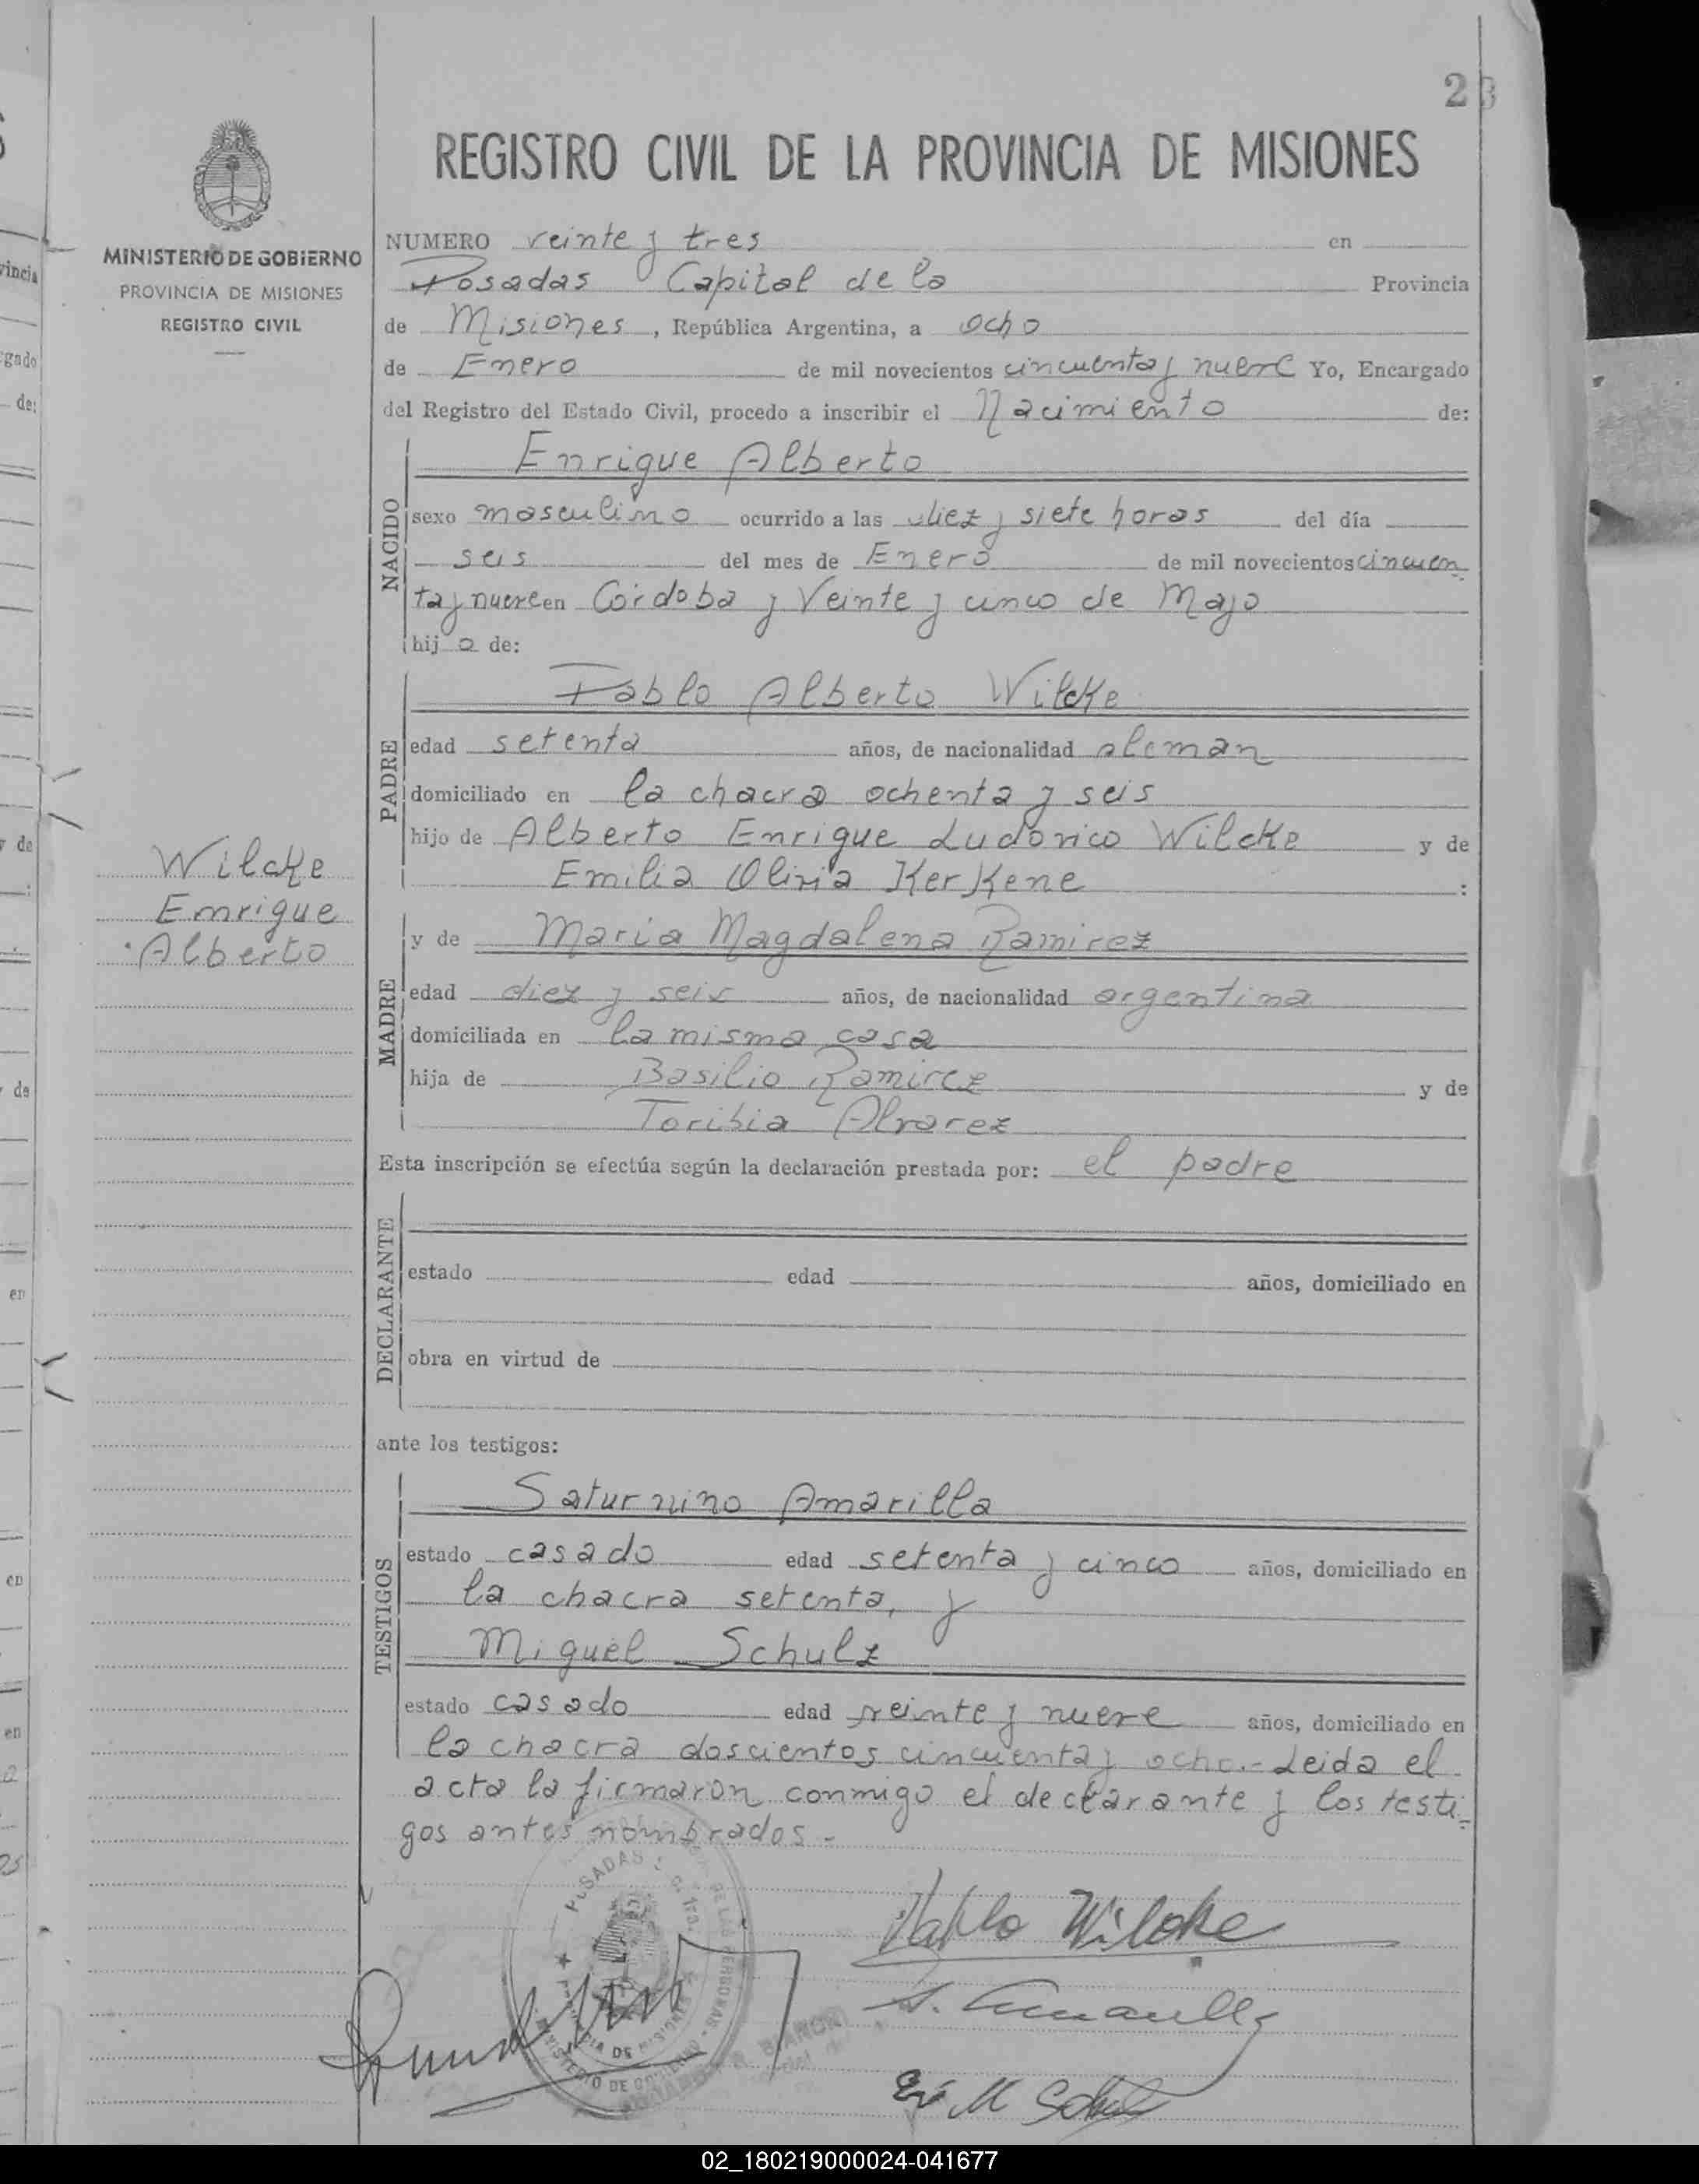 23
REGISTRO CIVIL DE LA PROVINCIA DE MISIONES
MINISTERIO DE GOBIERNO
PROVINCIA DE MISIONES
REGISTRO CIVIL
NUMERO veinte y tres en
Posadas Capital de la Provincia
de Misiones, República Argentina, a ocho
de Enero de mil novecientos cincuenta y nueve Yo, Encargado
del Registro del Estado Civil, procedo a inscribir el Nacimiento de:
NACIDO
Enrique Alberto
sexo masculino ocurrido a las diez y siete horas del día
seis del mes de Enero de mil novecientos cincuen
ta y nueve en Córdoba y Veinte y cinco de Mayo
hijo de:
PADRE
Pablo Alberto Wilcke
edad setenta años, de nacionalidad aleman
domiciliado en la chacra ochenta y seis
hijo de Alberto Enrique Ludovico Wilcke y de
Emilia Olivia KerKene :
Wilcke
Enrique
Alberto
MADRE
y de Maria Magdalena Ramirez
edad diez y seis años, de nacionalidad argentina
domiciliada en la misma casa
hija de Basilio Ramirez y de
Toribia Alvarez
Esta inscripción se efectúa según la declaración prestada por: el padre
DECLARANTE
estado edad años, domiciliado en
obra en virtud de
ante los testigos:
TESTIGOS
Saturnino Amarilla
estado casado edad setenta y cinco años, domiciliado en
la chacra setenta, y
Miguel Schulz
estado casado edad veinte y nueve años, domiciliado en
la chacra doscientos cincuenta y ocho.- Leida el
acta la firmaron conmigo el declarante y los testi-
gos antes nombrados.-
POSADAS
Pablo Wilcke
S. Amarilla
MINISTERIO DE GOBIERNO
02_180219000024-041677